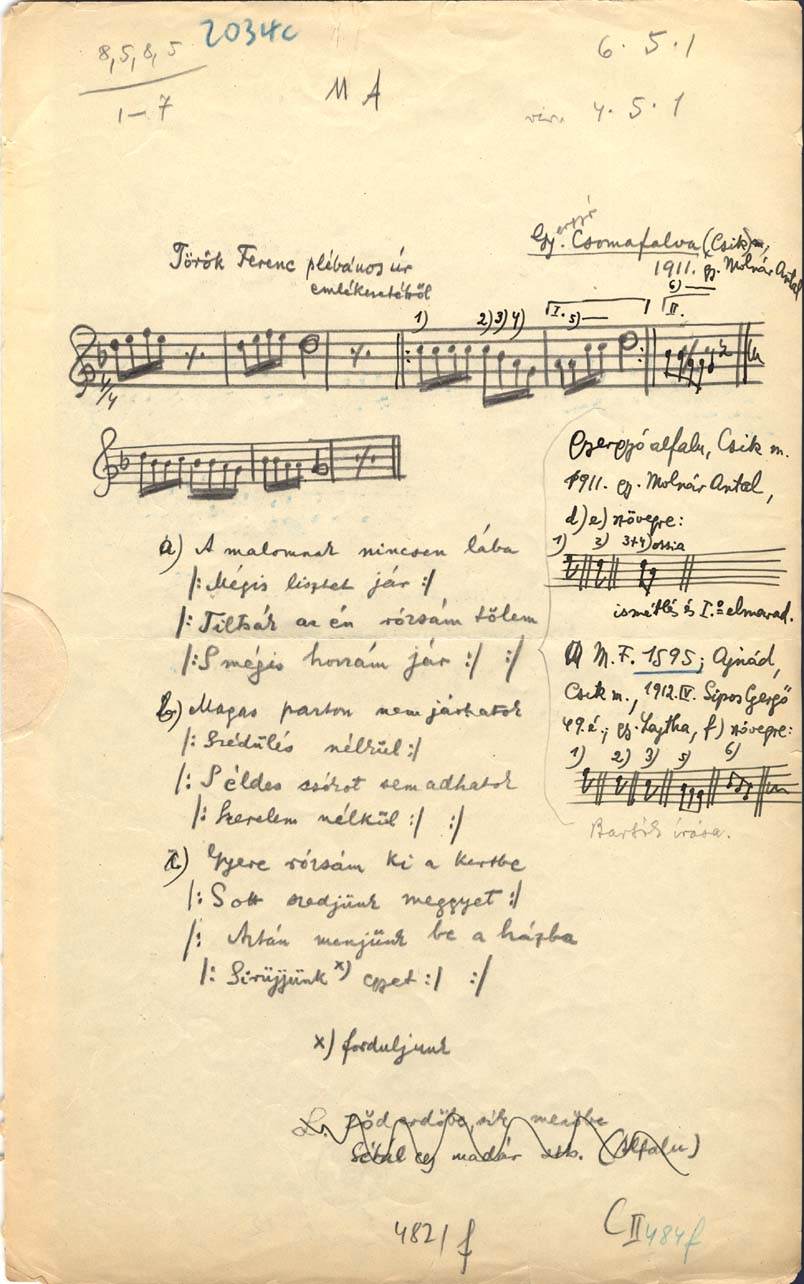 2034c
8, 5, 8, 5
1–7
6 . 5 . 1
M A
4 . 5 . 1
Gyergyó. Csomafalva (Csik) m,
1911. gy. Molnár Antal
Török Ferenc plébános úr
emlékezetéből
1) 2) 3) 4) I. 5) 6) II.
4/4
Gyergyóalfalu, Csik m.
1911. gy. Molnár Antal,
d) e) szövegre:
1) 2) 3+4) ossia
ismétlés és I.º elmarad.
M. F. 1595; Ajnád,
Csik m., 1912. IV. Sipos Gergő
49. é.; gy. Lajtha, f) szövegre:
1) 2) 3) 5) 6)
Bartók írása.
a) A malomnak nincsen lába
/: Mégis lisztet jár :/
/: Tiltsák az én rózsám tőlem
/: S mégis hozzám jár :/ :/
b) Magas parton nem járhatok
/: Szédülés nélkül :/
/: S éldes csókot sem adhatok
/: Szerelem nélkül :/ :/
c) Gyere rózsám ki a kertbe
/: S ott szedjünk meggyet :/
/: Aztán menjünk be a házba
/: Sirüjjünk x) egyet :/ :/
x) forduljunk
erdőbe, sík mezőbe
Sétál egy madár stb. (Alfalu)
482/f
C II 484f